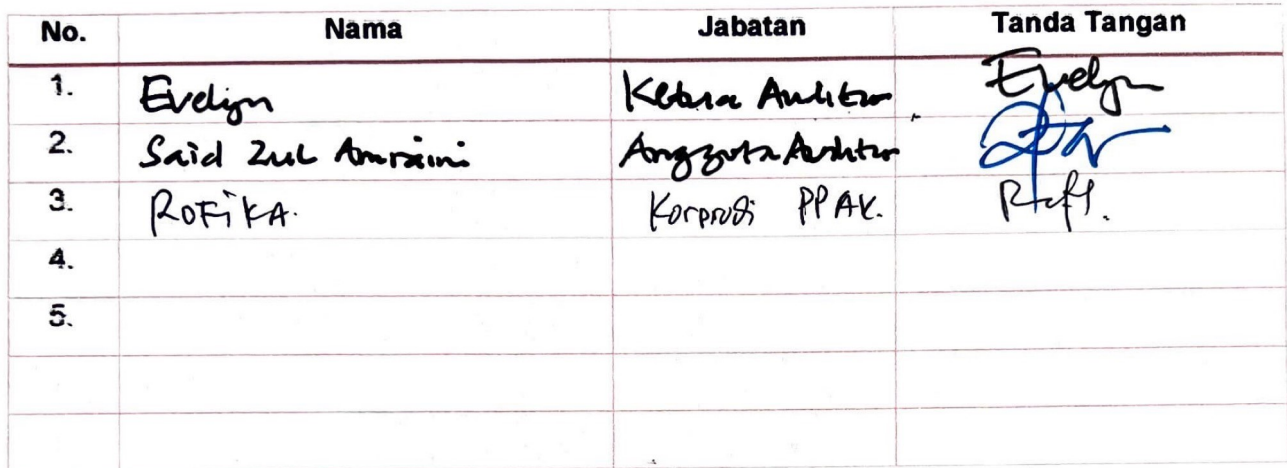 No. Nama Jabatan Tanda Tangan
1. Evelyn Ketua Auditor Evelyn
2. Said Zul Amraini Anggota Auditor
3. ROFIKA. Korprodi PPAK.
4.
5.